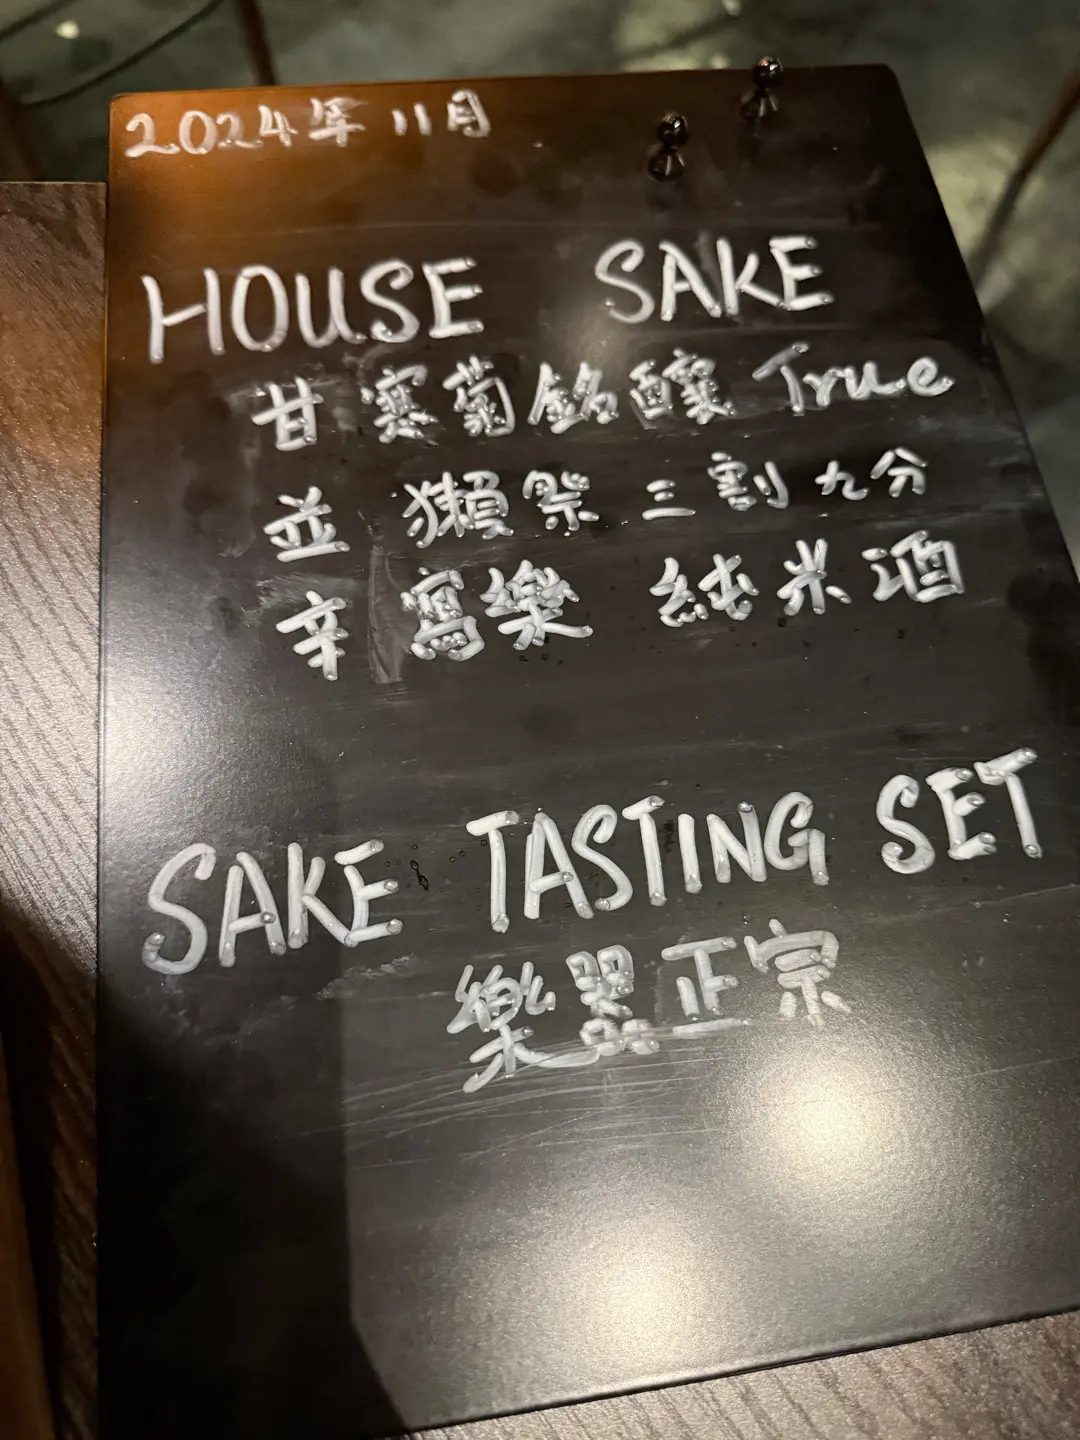 2024年11月
HOUSE SAKE
甘 寒菊銘釀 True
並 獺祭 三割九分
辛 寫樂 純米酒
SAKE TASTING SET
樂器正宗